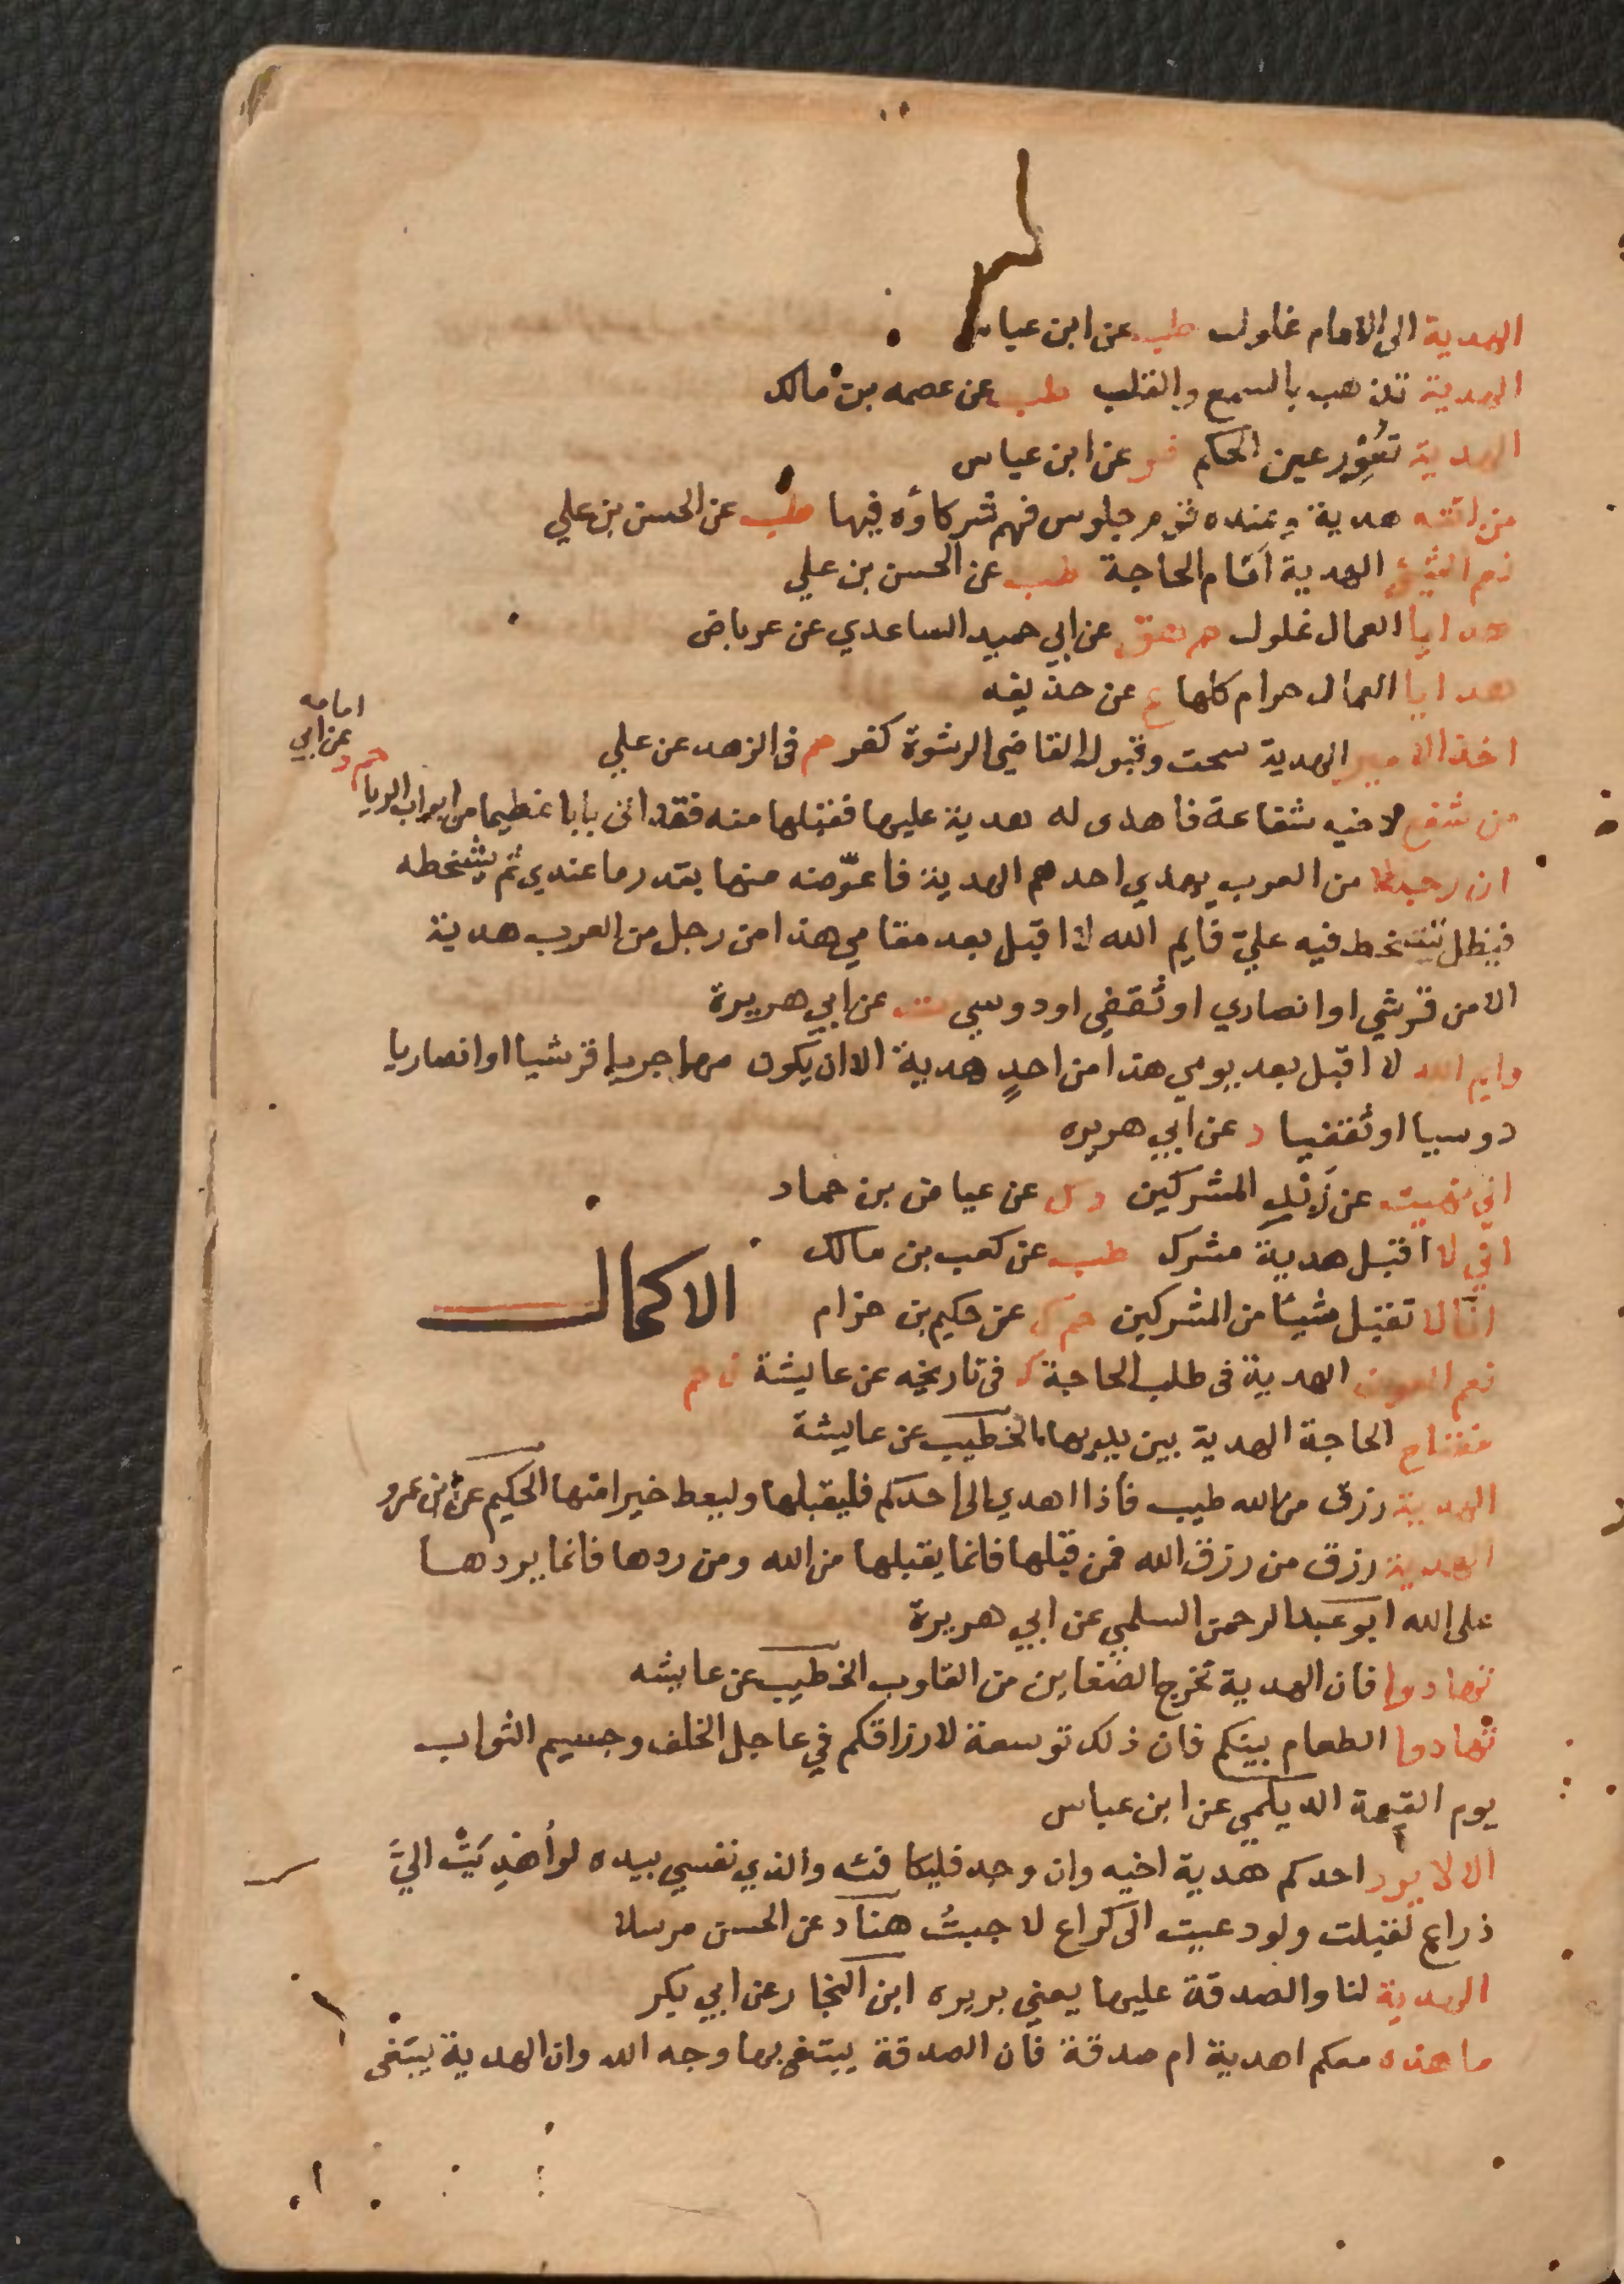 الهدية الى الامام غلول طب عن ابن عباس
الهدية تذهب بالسمع والقلب طب عن عصمه بن مالك
الهدية تعور عين الحكيم فر عن ابن عباس
من اتته هدية وعنده قوم جلوس فهم شركاؤه فيها طب عن الحسن بن علي
نعم الشيء الهدية امام الحاجة طب عن الحسن بن علي
هدايا العمال غلول حم هق عن ابي حميد الساعدي عن عرباض
هدايا العمال حرام كلها ع عن حذيفه
اخذ الامير الهدية سحت وقبول القاضي الرشوة كفر حم فى الزهد عن علي
من شفع لاخيه شفاعة فاهدى له هدية عليها فقبلها منه فقد اتى بابا عظيما من ابواب الربا حم د عن ابي امامه
ان رجالا من العرب يهدي احدهم الهدية فاعوّضه منها بقدر ما عندي ثم يتسخطه
فيظل يتسخط فيه عليّ فايم الله لا اقبل بعد مقامي هذا من رجل من العرب هدية
الا من قرشي او انصاري او ثقفي او دوسي ت عن ابي هريرة
وايم الله لا اقبل بعد يومي هذا من احدٍ هدية الا ان يكون مهاجريا قرشيا او انصاريا
دوسيا او ثقفيا د عن ابي هريره
اني نهيت عن زَبْدِ المشركين د ت عن عياض بن حماد
اني لا اقبل هدية مشرك طب عن كعب بن مالك
انّا لا نقبل شيئا من المشركين حم ك عن حكيم بن حزام
الاكمال
نعم العون الهدية فى طلب الحاجة ك فى تاريخه عن عايشة
مفتاح الحاجة الهدية بين يديها الخطيب عن عايشة
الهدية رزق من الله طيب فاذا اهدي الى احدكم فليقبلها وليعط خيرا منها الحكيم عن ابن عمرو
الهدية رزق من رزق الله فمن قبلها فانما يقبلها من الله ومن ردها فانما يردها
على الله ابو عبد الرحمن السلمي عن ابي هريرة
تهادوا فان الهدية تخرج الضغاين من القلوب الخطيب عن عايشه
تهادوا الطعام بينكم فان ذلك توسعة لارزاقكم في عاجل الخلف وجسيم الثواب
يوم القيمة الديلمي عن ابن عباس
الا لا يرد احدكم هدية اخيه وان وجد فليكافئه والذي نفسي بيده لو أُهْدِيَتْ اليَّ
ذراع لقبلت ولو دعيت الى كراع لاجبتُ هناد عن الحسن مرسلا
الهدية لنا والصدقة عليها يعني بريره ابن النجار عن ابي بكر
ما هذه معكم اهدية ام صدقة فان الصدقة يبتغى بها وجه الله وان الهدية يبتغى